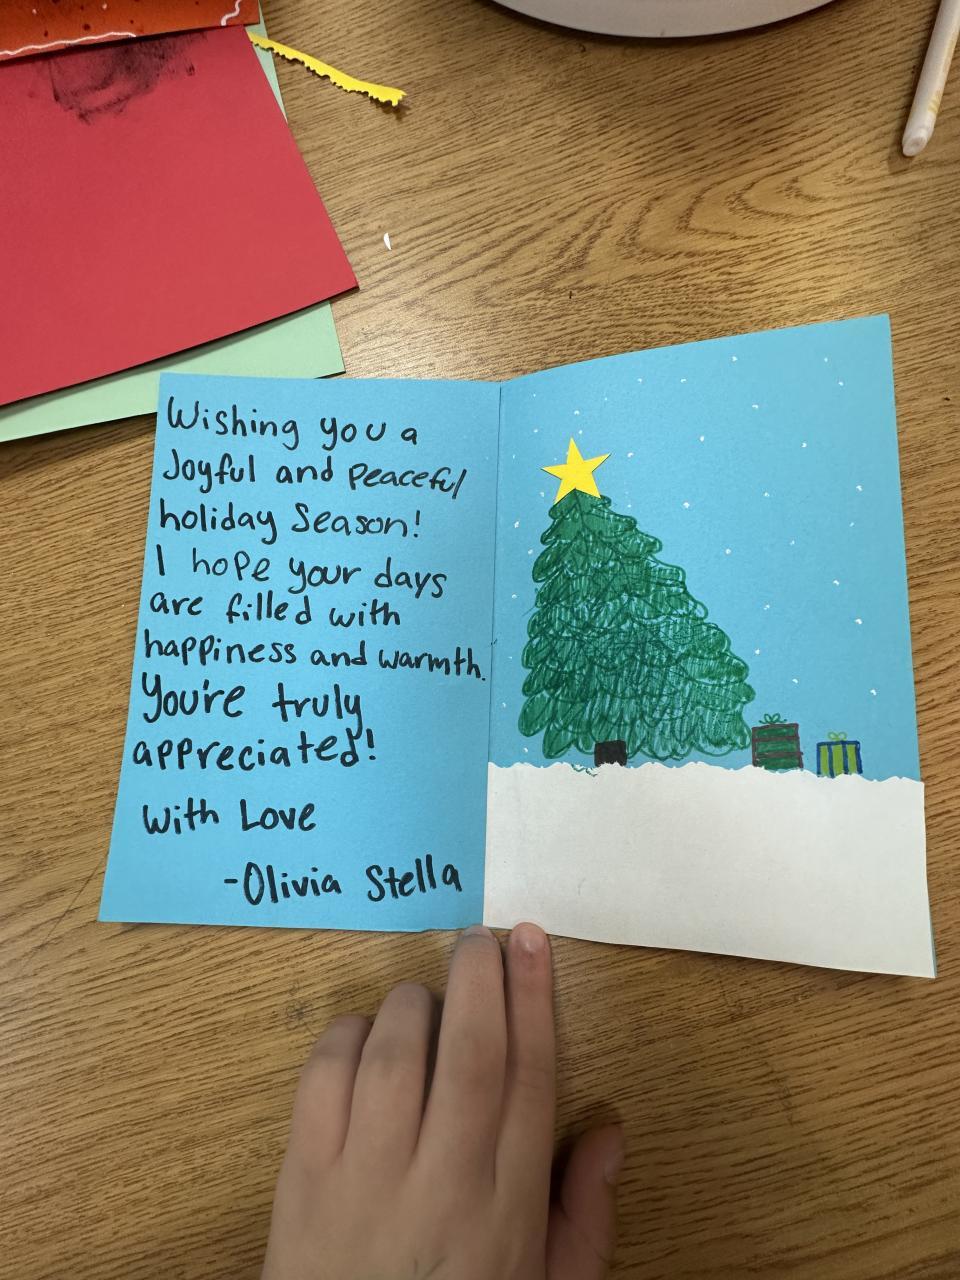 Wishing you a
Joyful and peaceful
holiday Season!
I hope your days
are filled with
happiness and warmth.
You're truly
appreciated!
With Love
-Olivia Stella